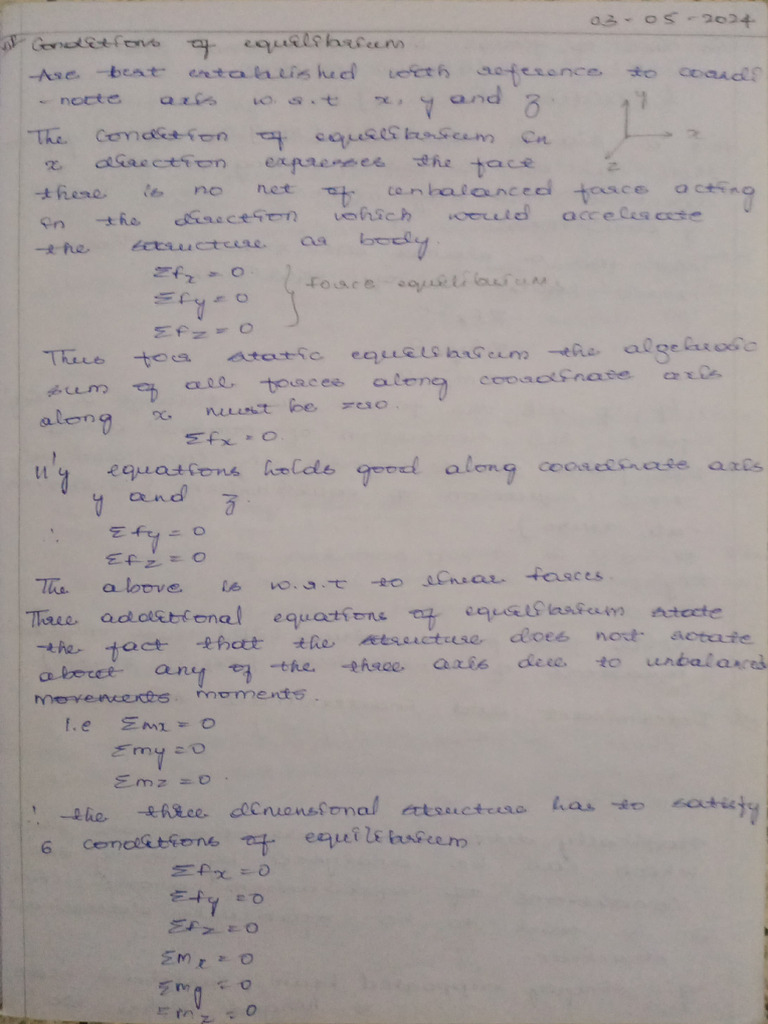 03-05-2024
Conditions of equilibrium
Are best established with reference to coordi
-nate axis w.r.t x, y and z.
y
x
z
The condition of equilibrium in
x direction expresses the fact
there is no net of unbalanced force acting
in the direction which would accelerate
the structure or body.
Σfx = 0
Σfy = 0
Σfz = 0
force equilibrium
Thus for static equilibrium the algebraic
sum of all forces along coordinate axis
along x must be zero.
Σfx = 0.
ll'y equations holds good along coordinate axis
y and z.
∴ Σfy = 0
Σfz = 0
The above is w.r.t to linear forces.
Three additional equations of equilibrium state
the fact that the structure does not rotate
about any of the three axis due to unbalanced
movements moments.
i.e Σmx = 0
Σmy = 0
Σmz = 0.
∴ the three dimensional structure has to satisfy
6 conditions of equilibrium
Σfx = 0
Σfy = 0
Σfz = 0
Σmx = 0
Σmy = 0
Σmz = 0